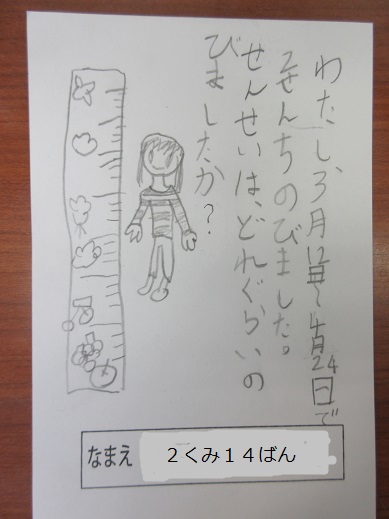 わたし、3月12日~4月24日で
2せんちのびました。
せんせいは、どれぐらいの
びましたか?
なまえ 2くみ14ばん